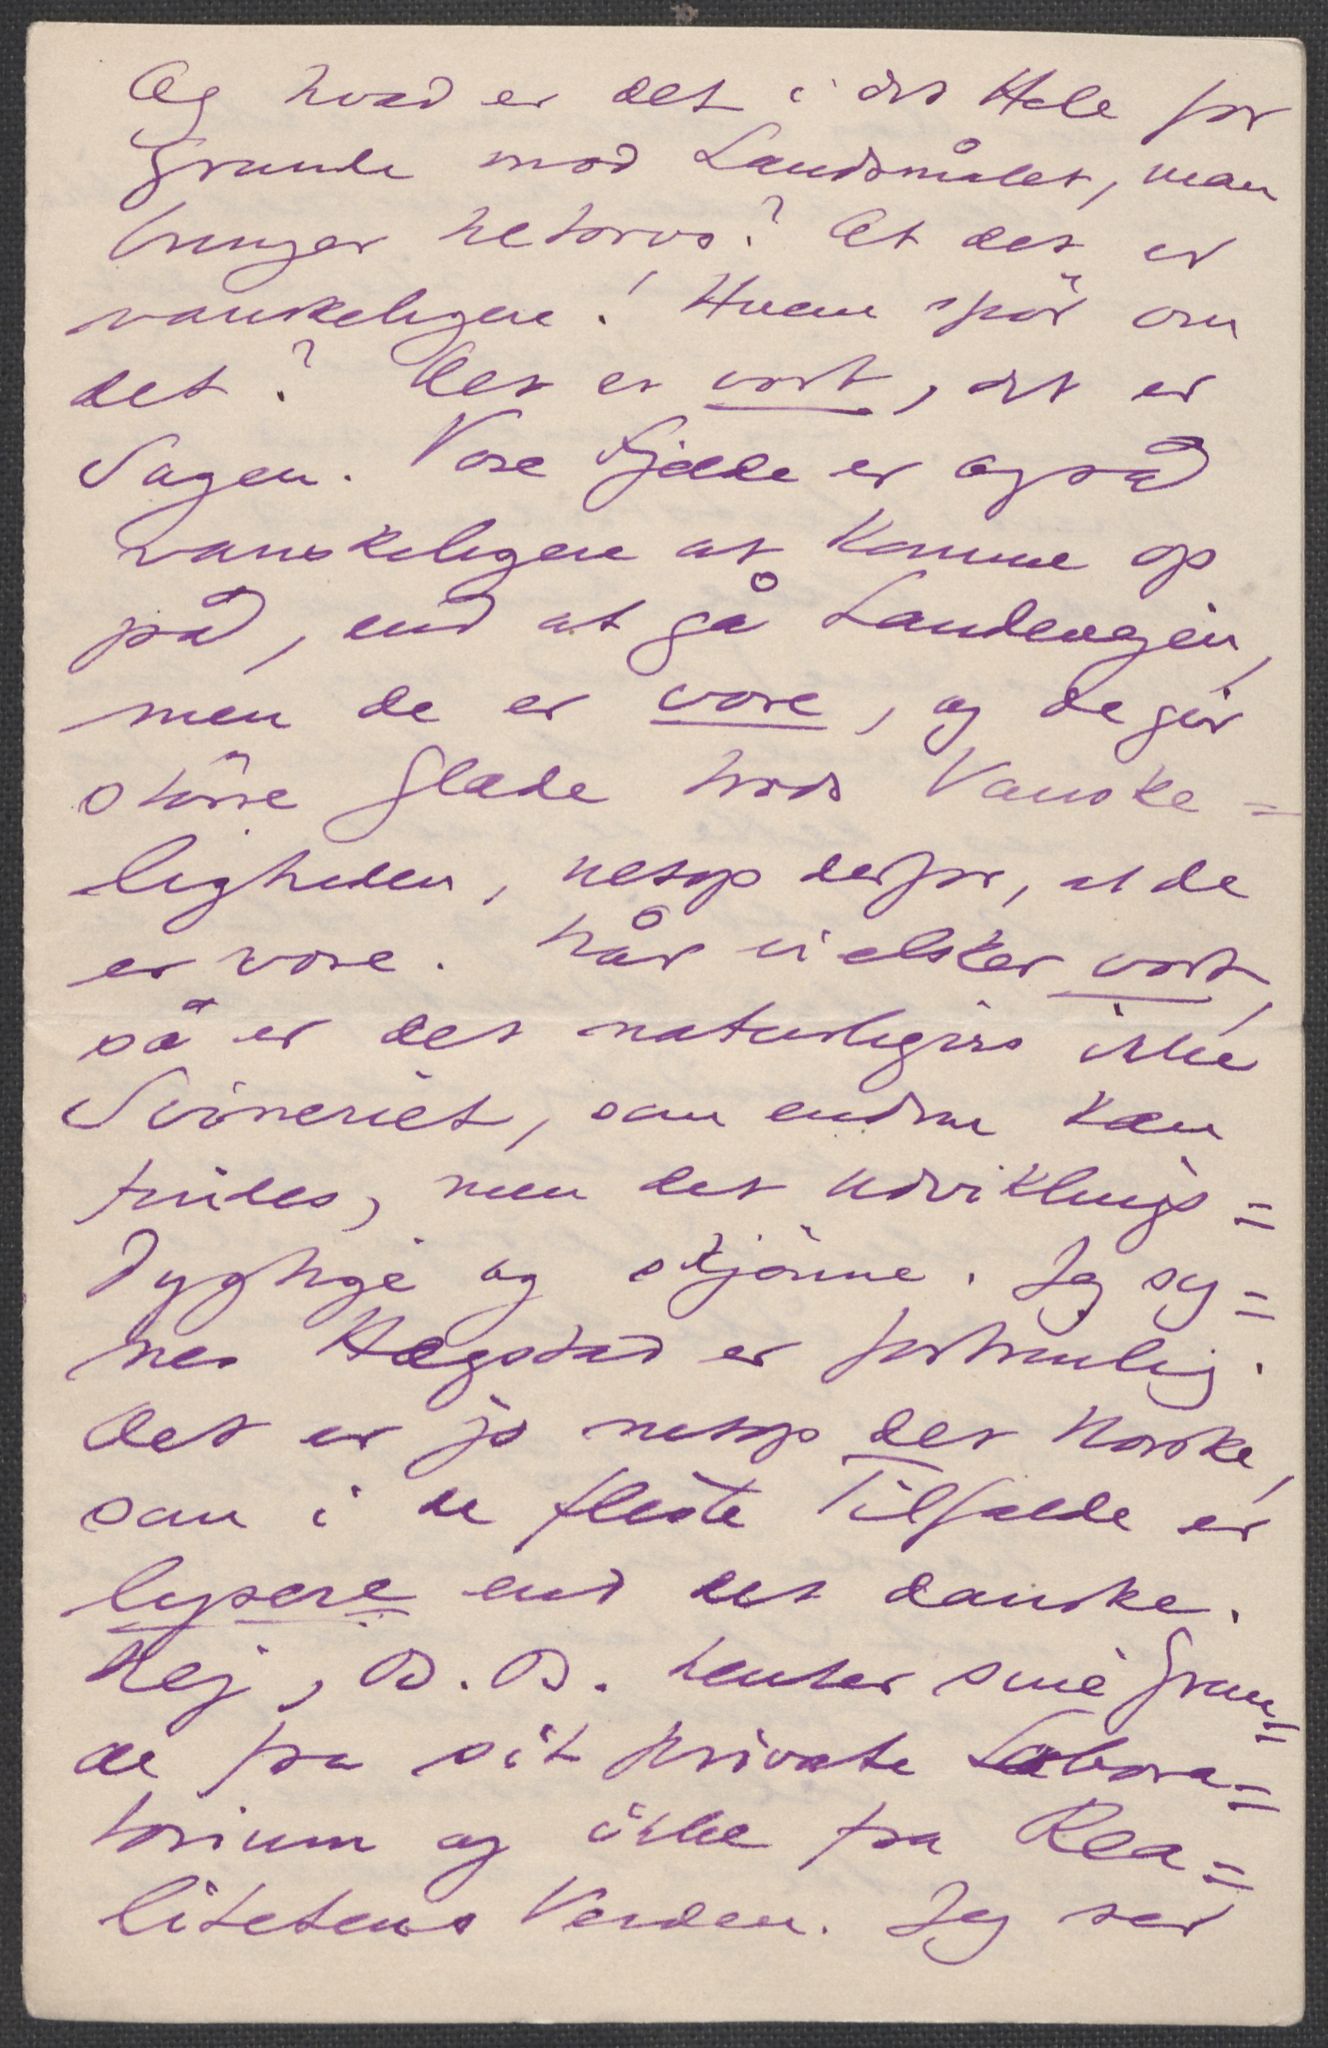 Og hvad er det i det Hele for
Grunde mod Landsmålet, man
bringer tiltorvs? At det er
vanskeligere! Hvem spør om
det? Det er vort, det er
Sagen. Vore Fjelde er også
vanskeligere at komme op
på, end at gå Landevejen,
men de er vore, og de gir
större Glæde trods Vanske=
ligheden, netop derfor, at de
er vore. Når vi elsker vort,
så er det naturligvis ikke
Svineriet, som endnu kan
findes, men det udviklings=
dygtige og skjönne. Jeg sy=
nes Hægstad er fortræffelig.
Det er jo netop det Norske,
som i de fleste Tilfælde er
lysere end det danske.
Nej, B. B. henter sine Grun=
de fra sit private Labora=
torium og ikke fra Rea=
litetens Verden. Jeg ser